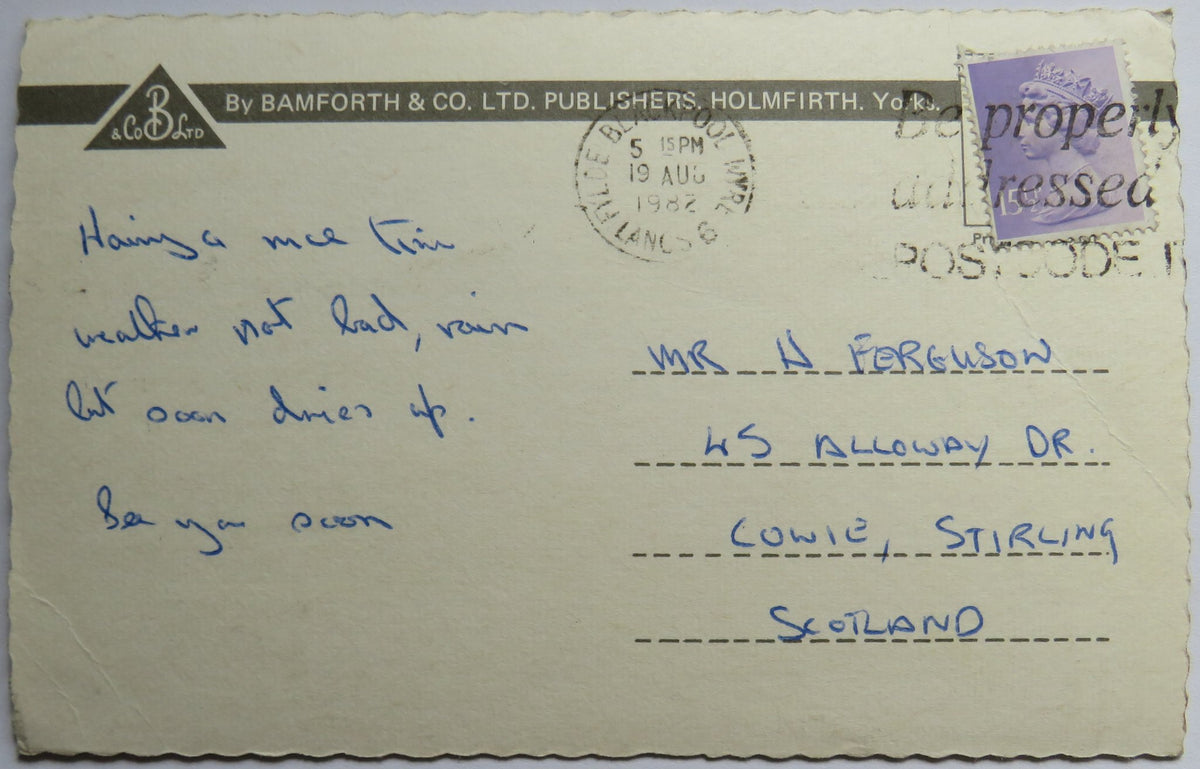 B
& Co Ltd
By BAMFORTH & CO. LTD. PUBLISHERS, HOLMFIRTH. Yorks.
FYLDE BLACKPOOL WYRE
5 15 PM
19 AUG
1982
LANCS 6
Be properly
addressed
POSTCODE IT
15P
Having a nice time
weather not bad, rain
but soon dries up.
See you soon
MR H FERGUSON
45 ALLOWAY DR.
COWIE, STIRLING
SCOTLAND